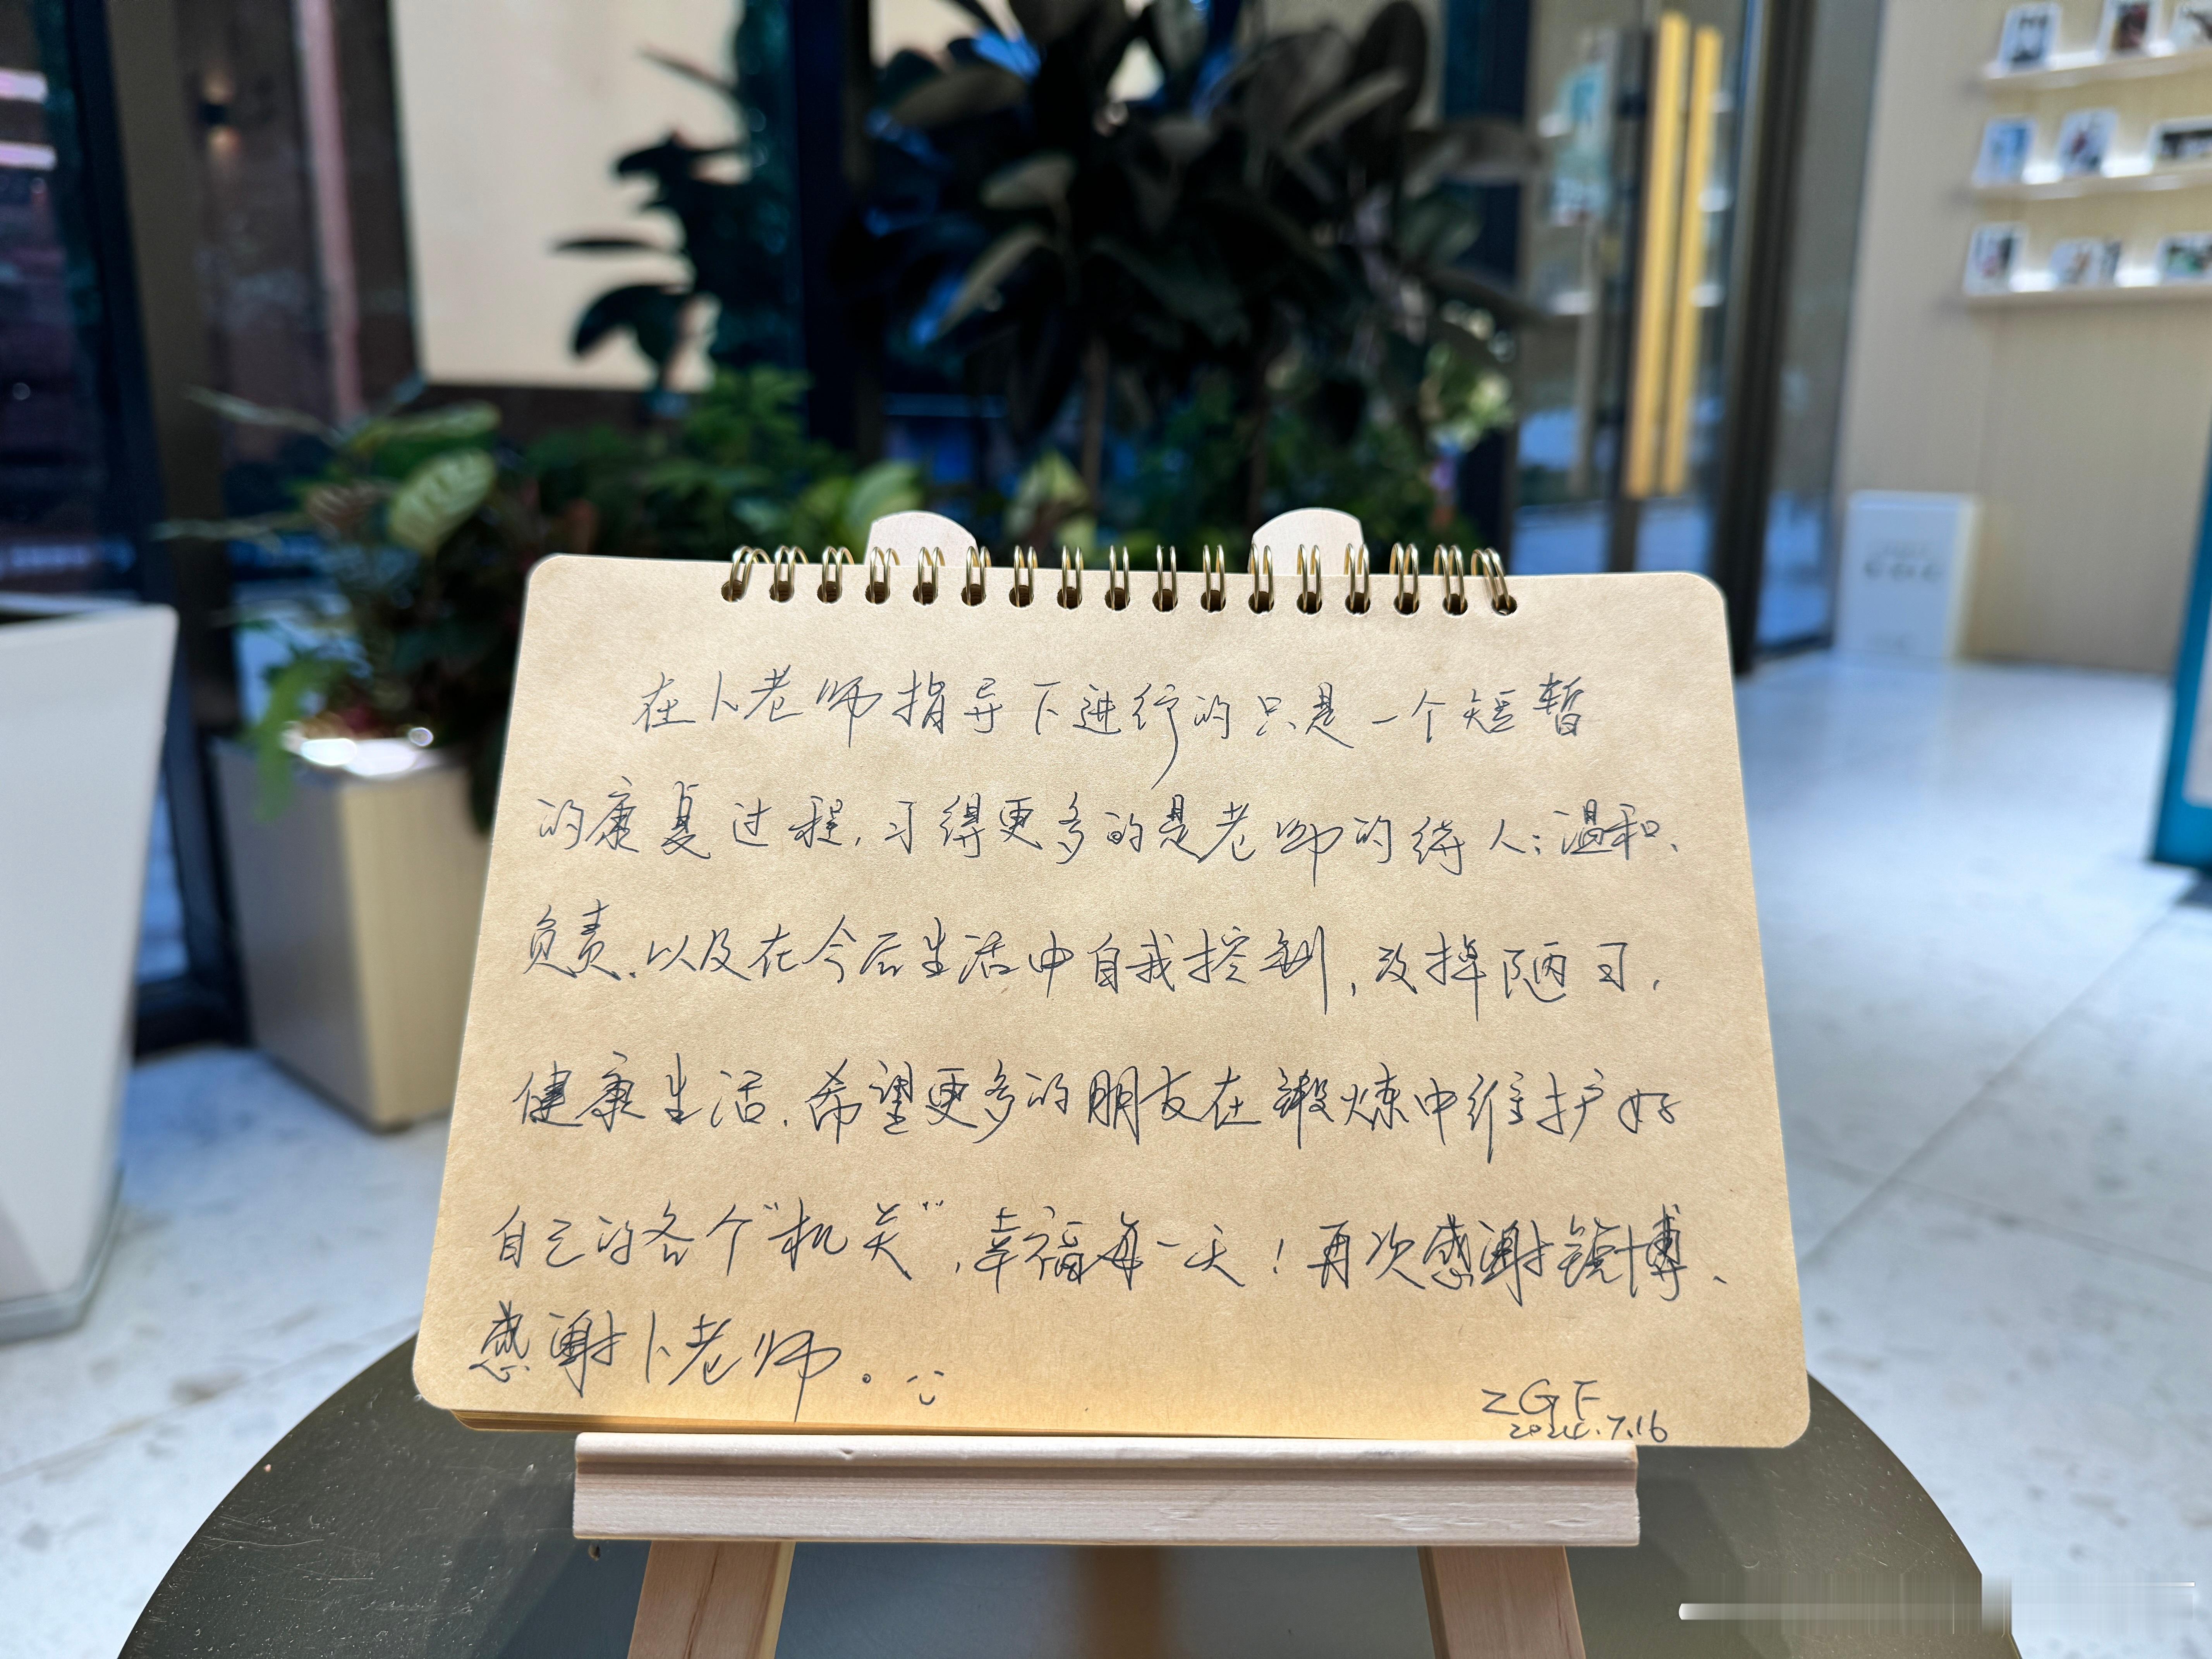 在卜老师指导下进行的只是一个短暂
的康复过程，习得更多的是老师的待人：温和、
负责、以及在今后生活中自我控制，改掉陋习，
健康生活．希望更多的朋友在锻炼中维护好
自己的各个“机关”，幸福每一天！再次感谢镜博、
感谢卜老师。
ZGF
2024.7.16